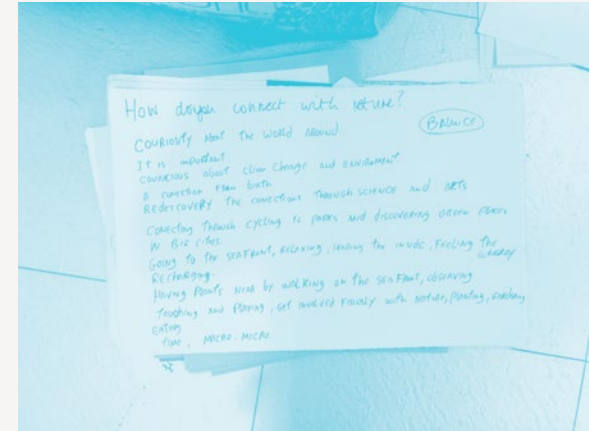 How do you connect with nature?
BALANCE
COURIOSITY about the World around
It is important
councious about climate change and environment
A conection from birth
REDISCOVERY the conections through science and ARTS
Conecting through cycling to parks and discovering green places
in BIG cities
Going to the SEAFRONT, RELAXING, the , FEELING the
energy
RECHARGING
Having Plants near by walking on the sea front, observing
Touching and Playing, get involved with nature, planting,
eating
time, MACRO-MICRO